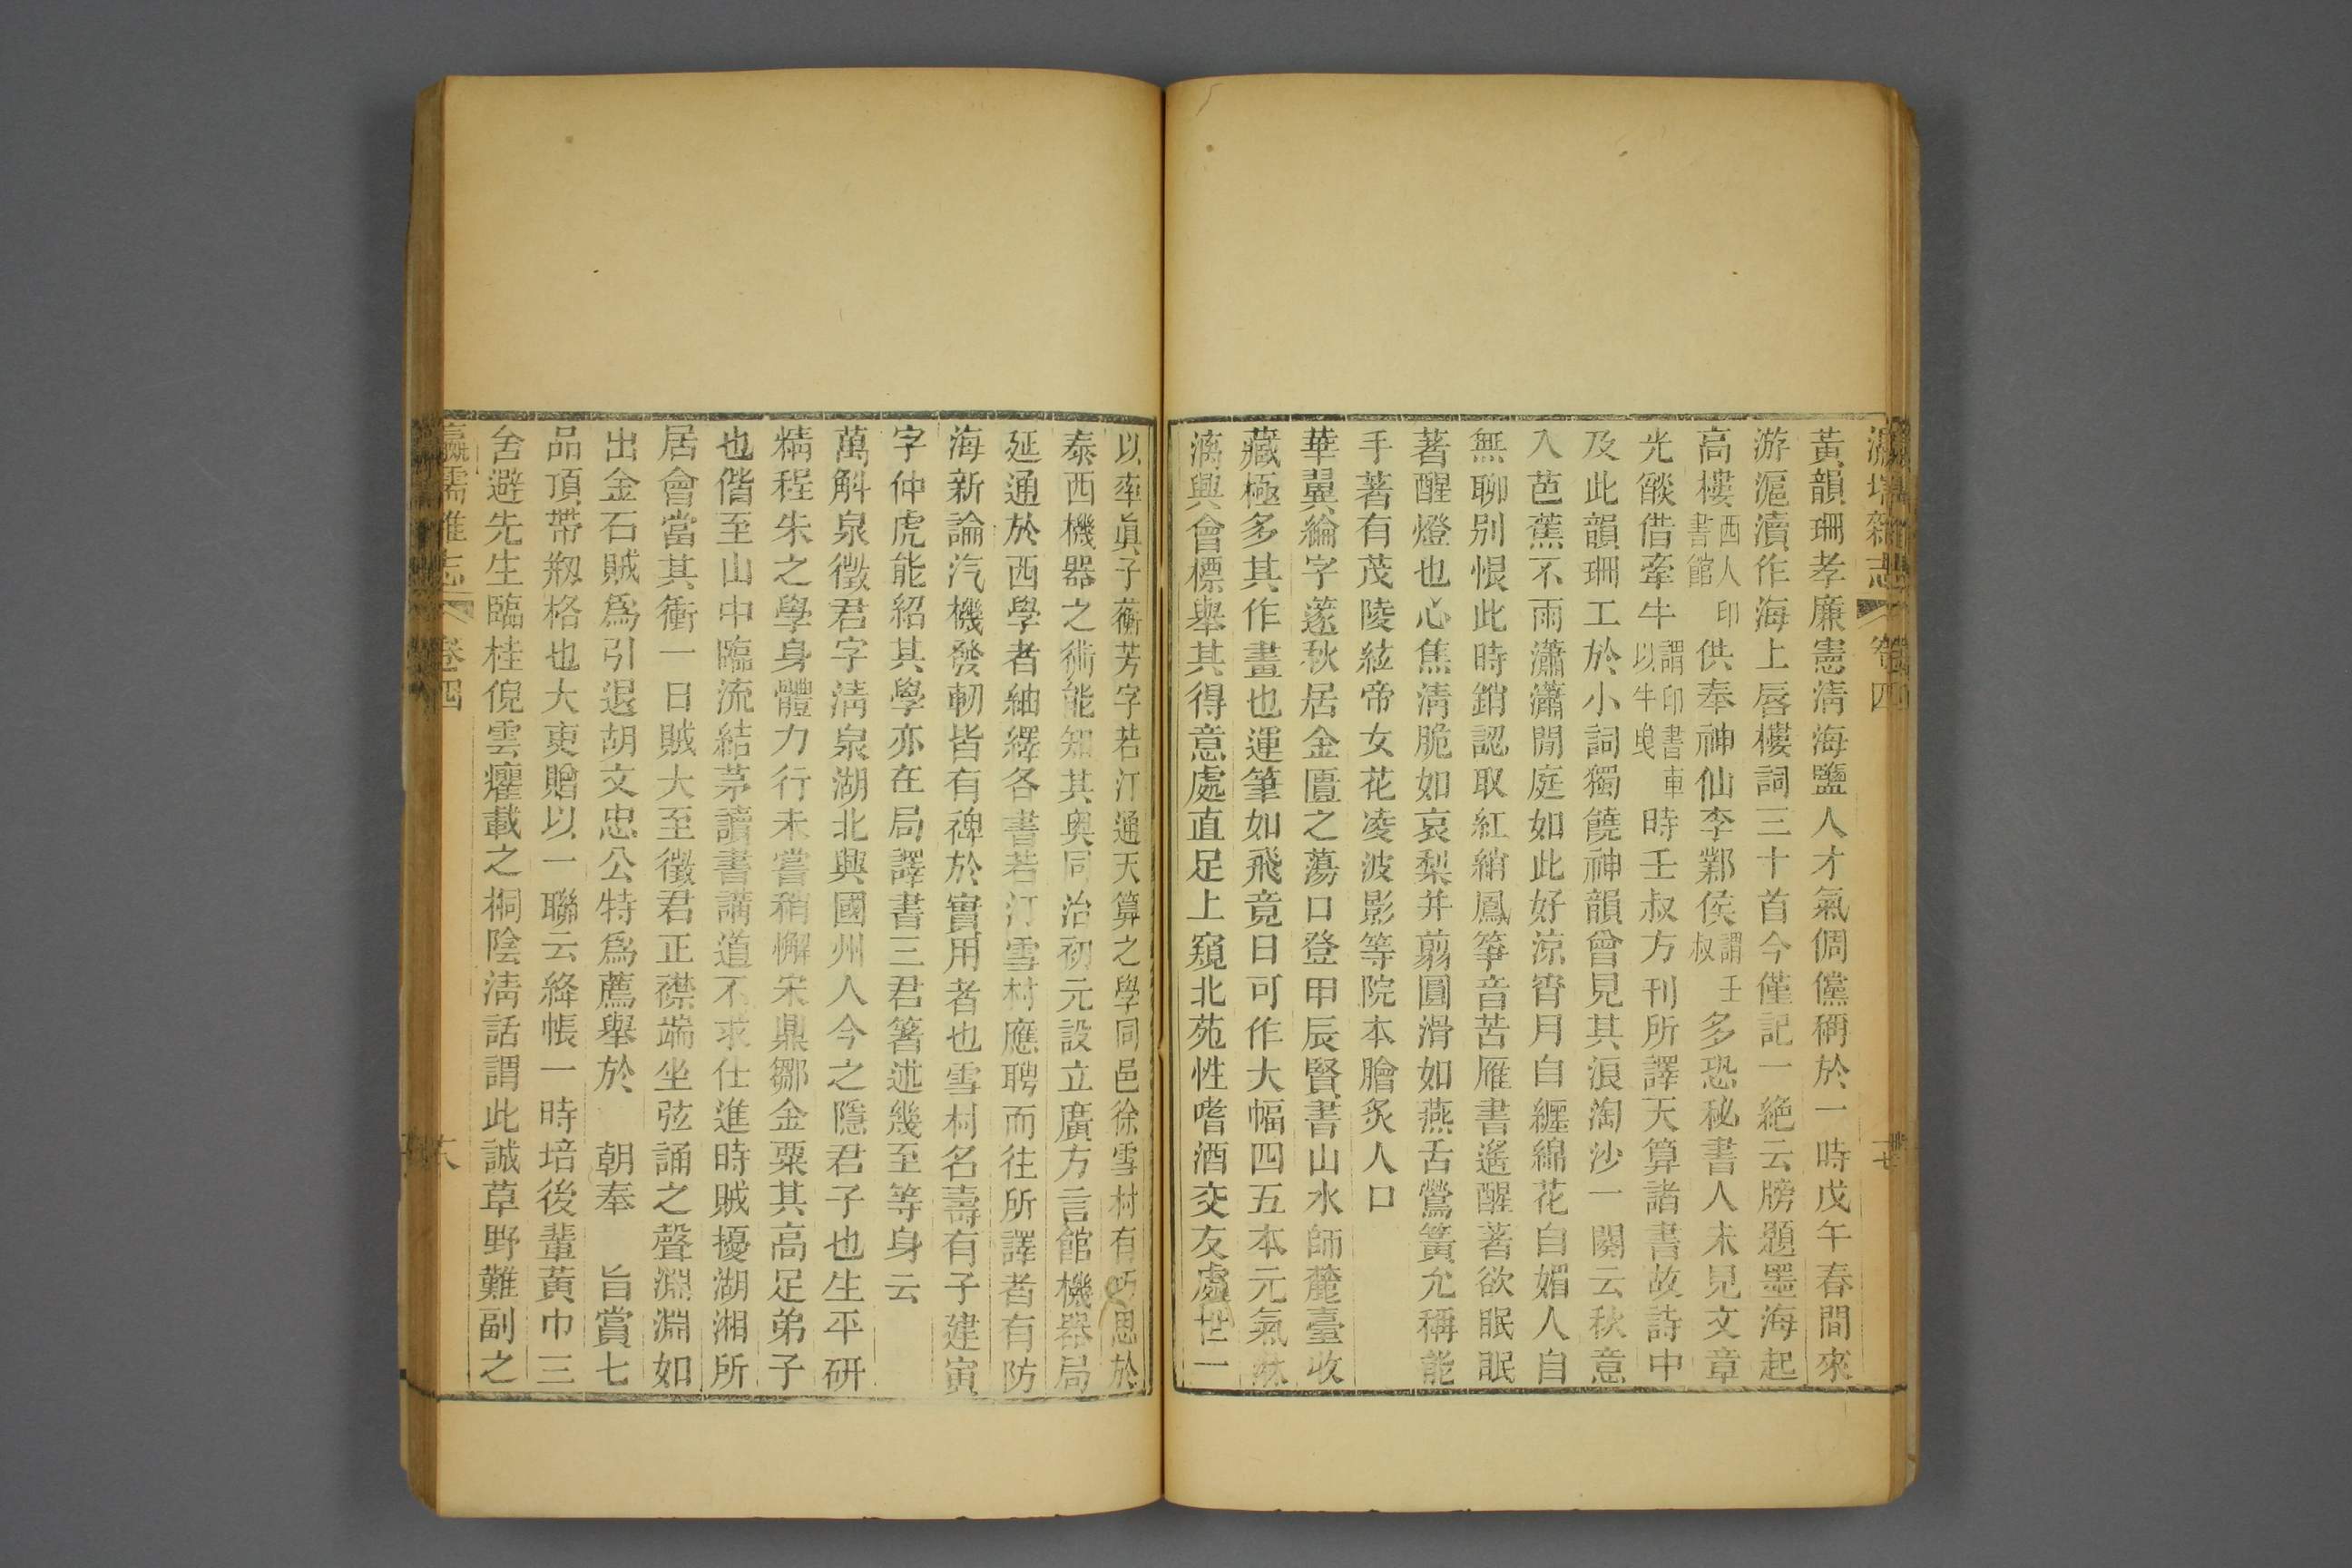 瀛壖雜志 卷四
黃韻珊孝廉憲清海鹽人才氣倜儻稱於一時戊午春間來
游滬瀆作海上唇樓詞三十首今僅記一絶云牓題墨海起
高樓西人印書館供奉神仙李鄴侯謂壬叔多恐秘書人未見文章
光燄借牽牛謂印書車以牛曳時壬叔方刊所譯天算諸書故詩中
及此韻珊工於小詞獨饒神韻曾見其浪淘沙一闋云秋意
入芭蕉不雨瀟瀟閒庭如此好涼宵月自纏綿花自媚人自
無聊别恨此時銷認取紅綃鳳箏音苦雁書遙醒著欲眠眠
著醒燈也心焦清脆如哀梨并翦圓滑如燕舌鶯簧允稱能
手著有茂陵絃帝女花凌波影等院本膾炙人口
華翼綸字篴秋居金匱之蕩口登甲辰賢書山水師麓臺收
藏極多其作畫也運筆如飛竟日可作大幅四五本元氣淋
漓興會標舉其得意處直足上窺北苑性嗜酒交友處世一
以率眞子蘅芳字若汀通天算之學同邑徐雪村有巧思於
泰西機器之術能知其奥同治初元設立廣方言館機器局
延通於西學者紬繹各書若汀雪村應聘而往所譯者有防
海新論汽機發軔皆有裨於實用者也雪村名壽有子建寅
字仲虎能紹其學亦在局譯書三君箸述幾至等身云
萬斛泉徵君字淸泉湖北興國州人今之隱君子也生平研
精程朱之學身體力行未嘗稍懈宋鼎鄒金粟其高足弟子
也偕至山中臨流結茅讀書講道不求仕進時賊擾湖湘所
居會當其衝一日賊大至徵君正襟端坐弦誦之聲淵淵如
出金石賊爲引退胡文忠公特爲薦舉於 朝奉 旨賞七
品頂帶剏格也大吏贈以一聯云絳帳一時培後輩黃巾三
舍避先生臨桂倪雲癯載之桐陰淸話謂此誠草野難副之
瀛壖雜志 卷四 六